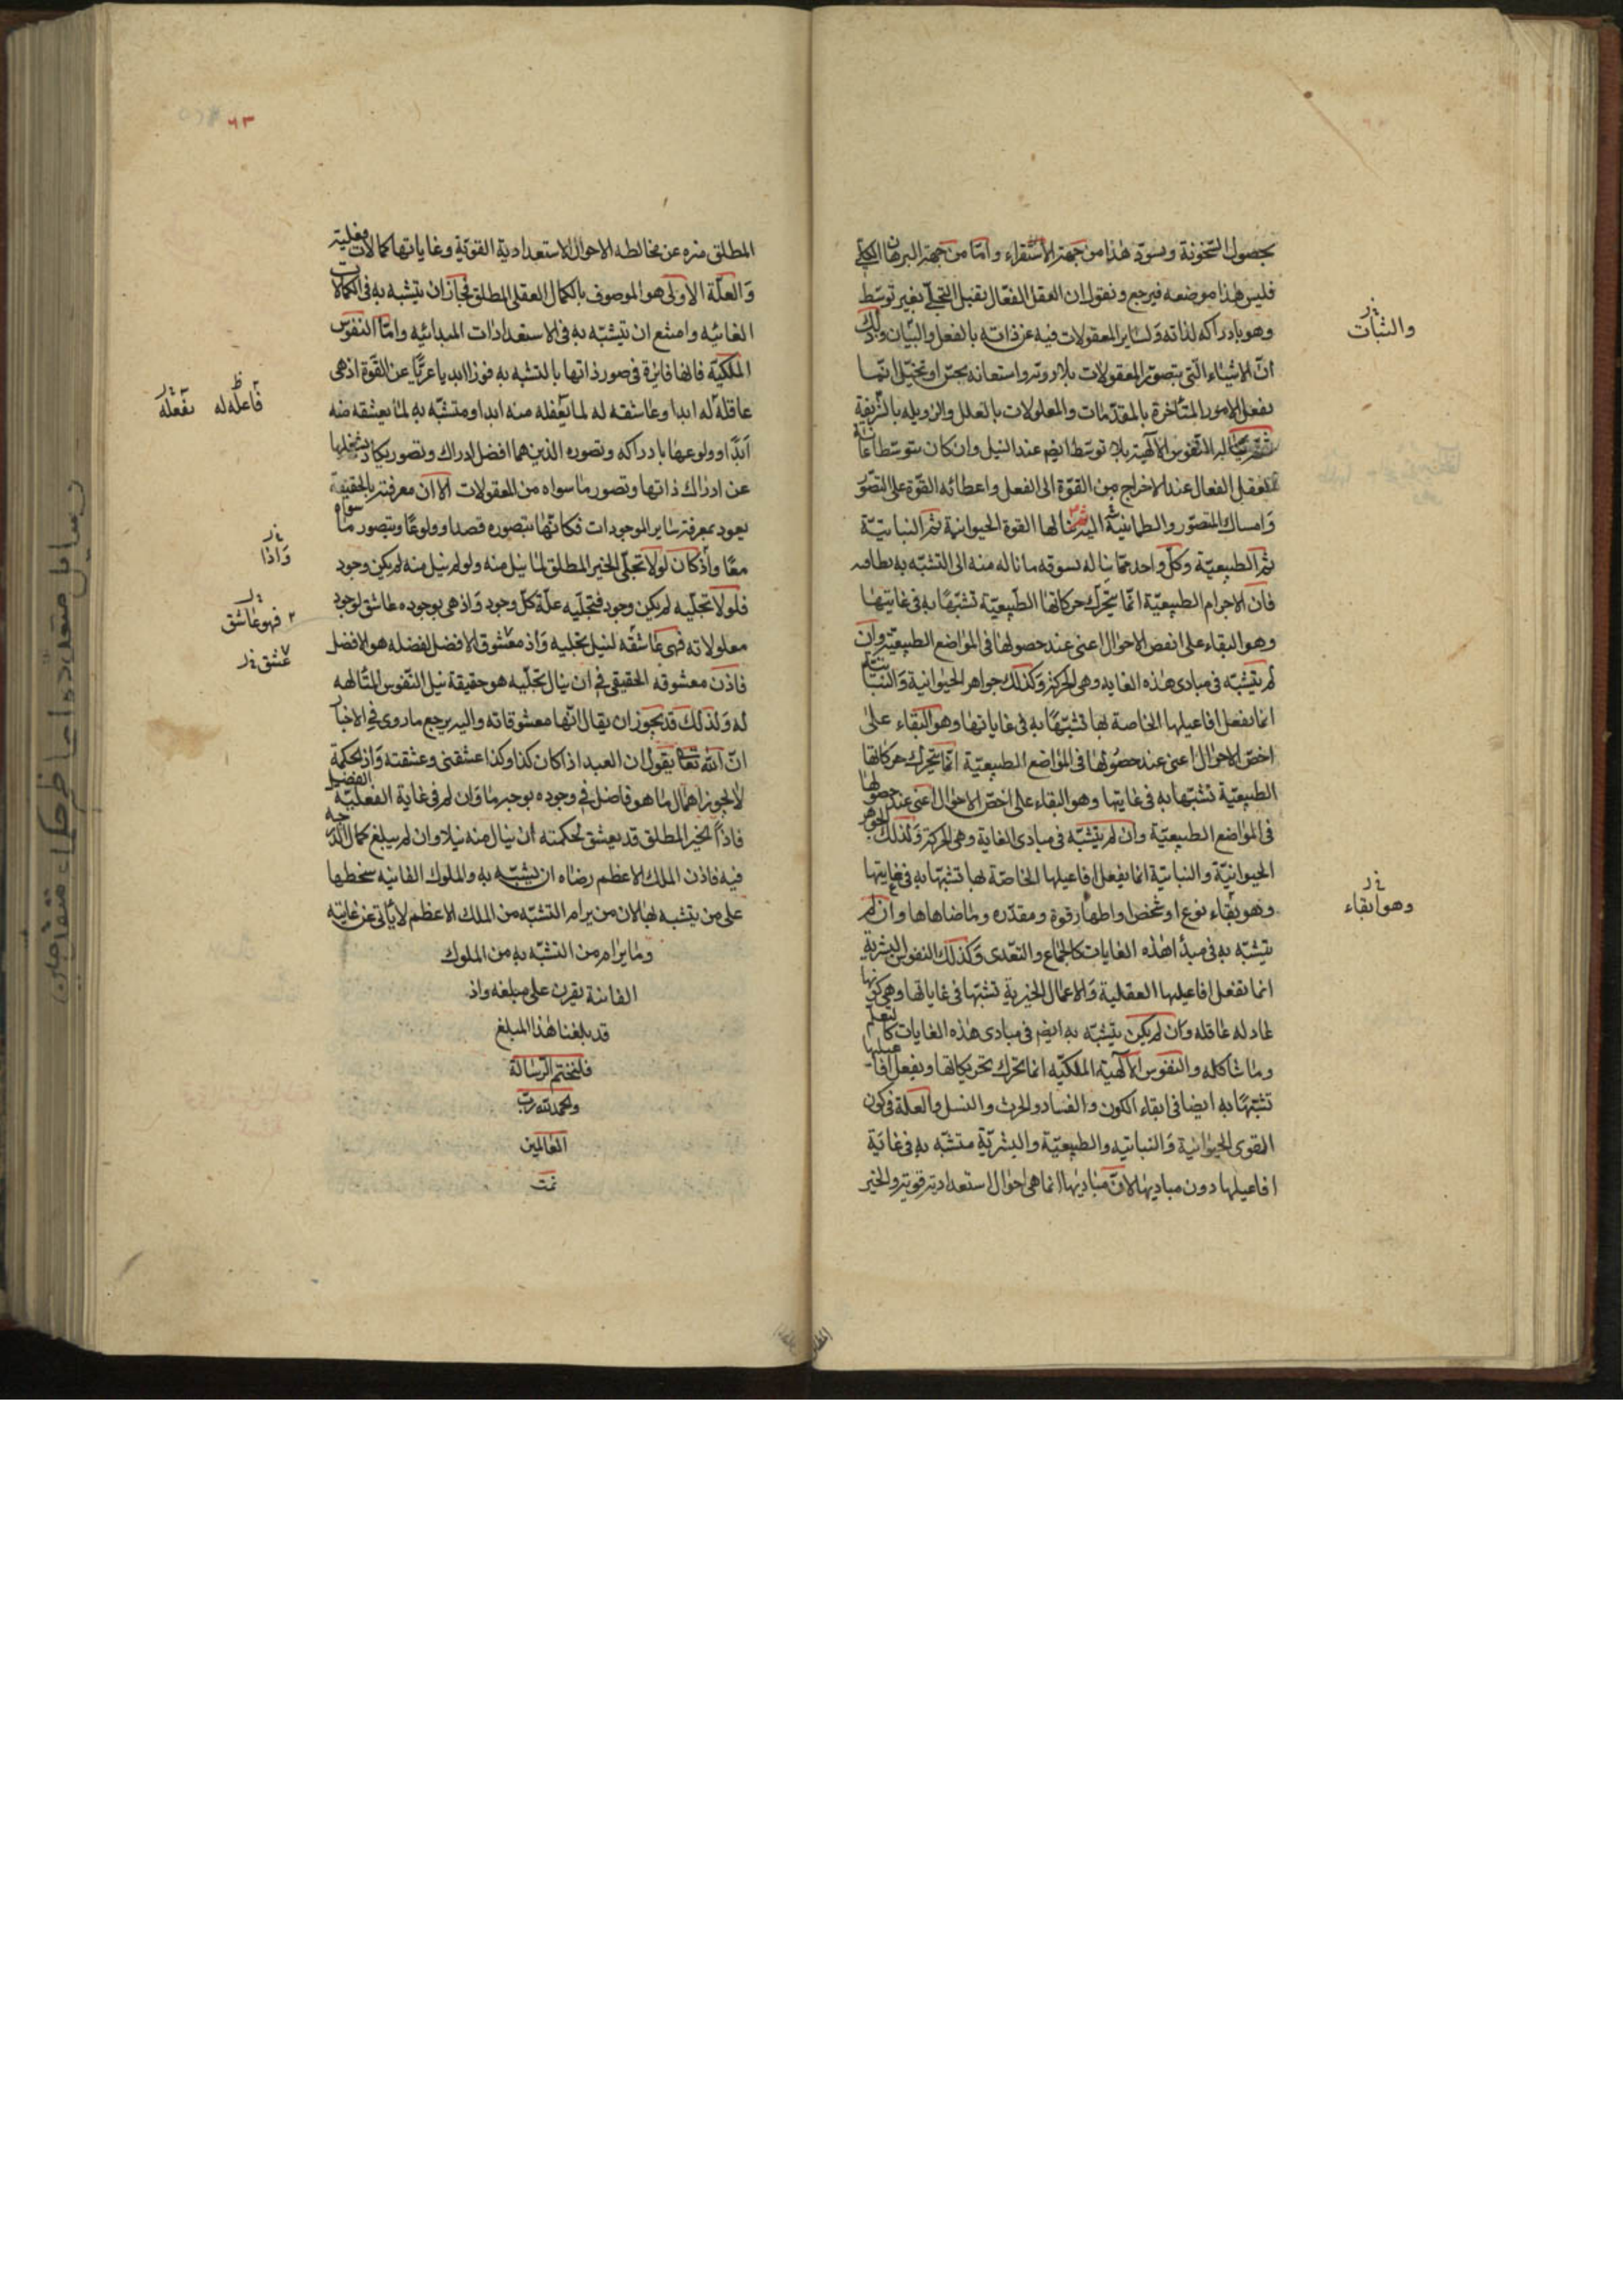 بحصول السخونة ويسوّد هذا من جهة الاستقراء وامّا من جهة البرهان الكلّي
فليس هذا موضعه فيرجع ونقول ان العقل الفعّال يقبل التجلّي بغير توسّط
وهو بادراكه لذاته ولساير المعقولات فيه عن ذاته بالفعل والبيان وذلك
والثبات
انّ الاشياء التي يتصوّر المعقولات بلا رويّة واستعانة بحسّ او تخيّل انّما
يفعل الامور المتأخرة بالمقدّمات والمعلولات بالعلل والرذيلة بالشريفة
النفوس الالهية بلا توسّط ايضا عند النيل وان كان بتوسّط اعانة
العقل الفعال عند الاخراج من القوّة الى الفعل واعطائه القوّة على التصوّر
وامساك المتصوّر والطمانينة اليه ثم ينالها القوة الحيوانية ثم النباتيّة
ثم الطبيعيّة وكلّ واحد ممّا يناله يسوقه ما ناله منه الى التشبّه به بطاقته
فان الاجرام الطبيعيّة انّما يتحرّك حركاتها الطبيعيّة تشبّهًا به في غايتها
وهو البقاء على اخص الاحوال اعني عند حصولها في المواضع الطبيعيّة وان
لم يتشبّه في مبادي هذه الغاية وهي الحركة وكذلك جواهر الحيوانية والنباتيّة
انما يفعل افاعيلها الخاصة بها تشبّهًا به في غاياتها وهو البقاء على
اخصّ الاحوال اعني عند حصولها في المواضع الطبيعيّة انّما يتحرك حركاتها
الطبيعيّة تشبّها به في غايتها وهو البقاء على اخصّ الاحوال اعني عند حصولها
في المواضع الطبيعيّة وان لم يتشبّه في مبادي الغاية وهي الحركة وكذلك الجواهر
الحيوانيّة والنباتيّة انما يفعل افاعيلها الخاصّة بها تشبّها به في غايتها
وهو بقاء نوع او شخص او اظهار قوة ومقدره وما ضاهاها وان لم
وهو ابقاء
يتشبّه به في مبدأ هذه الغايات كالجماع والتغذي وكذلك النفوس البشرية
انما تفعل افاعيلها العقلية والاعمال الخيرية تشبّها في غاياتها وهي كونها
عادلة عاقلة وان لم يكن يتشبّه به ايضا في مبادي هذه الغايات كالتعلّم
وما شاكله والنفوس الالهيّة الملكيّة انما يتحرك تحريكاتها ويفعل افاعيلها
تشبّهًا به ايضا في ابقاء الكون والفساد والحرث والنسل والعلة في كون
القوى الحيوانية والنباتيه والطبيعيّة والبشريّة متشبّه به في غاية
افاعيلها دون مباديها لانّ مباديها انما هي احوال استعدادية قوية والخير
٦٣
المطلق منزه عن مخالطة الاحوال الاستعدادية القويّة وغاياتها كمالات فعلية
والعلّة الاولى هو الموصوف بالكمال العقلي المطلق فجاز ان يتشبه به في الكمالات
الغائيه وامتنع ان يتشبّه به في الاستعدادات المبدائيه وامّا النفوس
الملكيّة فانها فائزة في صور ذاتها بالتشبه به فوزا ابديا عريًّا عن القوّة اذ هي
عاقلة له ابدا وعاشقة له لما يعقله منه ابدا ومتشبّه به لما يعشقه منه
فاعلة له بفعله
ابدًا وولوعها بادراكه وتصوره الذين هما افضل ادراك وتصور يكاد يشغلها
عن ادراك ذاتها وتصور ما سواه من المعقولات الا ان معرفته بالحقيقة
يعود بمعرفة ساير الموجودات فكانّها تتصوره قصدا وولوعًا ويتصور ما سواه
معًا واذ كان لولا تجلّي الخير المطلق لما نيل منه ولو لم نيل منه لم يكن وجود
واذا
فلولا تجلّيه لم يكن وجود فتجلّيه علّة كلّ وجود واذ هي بوجوده عاشق لوجود
فهو عاشق
معلولاته فهي عاشقه لنيل تجليه واذ معشوق الافضل لفضله هو الافضل
عشق
فاذن معشوقه الحقيقي في ان ينال تجلّيه هو حقيقة نيل النفوس المتألهة
له ولذلك قد يجوز ان يقال انّها معشوقاته واليه يرجع ما روى في الاخبار
انّ الله تعا يقول ان العبد اذا كان كذا وكذا عشقني وعشقته واذ الحكمة
لا يجوز اهمال ما هو فاضل في وجوده بوجه ما وان لم في غاية الفعليّة الفضيلة
فاذًا الخير المطلق قد يعشق لحكمته ان ينال منه نيلا وان لم يبلغ كمال الدرجة
فيه فاذن الملك الاعظم رضاه ان يتشبّه به والملوك الفانيه سخطها
على من يتشبه بها لان من يرام التشبّه من الملك الاعظم لا يأتي عن غايته
وما يرام من التشبّه به من الملوك
الفانية يقرن على مبلغه واذ
قد بلغنا هذا المبلغ
فلنختم الرّسالة
والحمد لله ربّ
العالمين
تمت